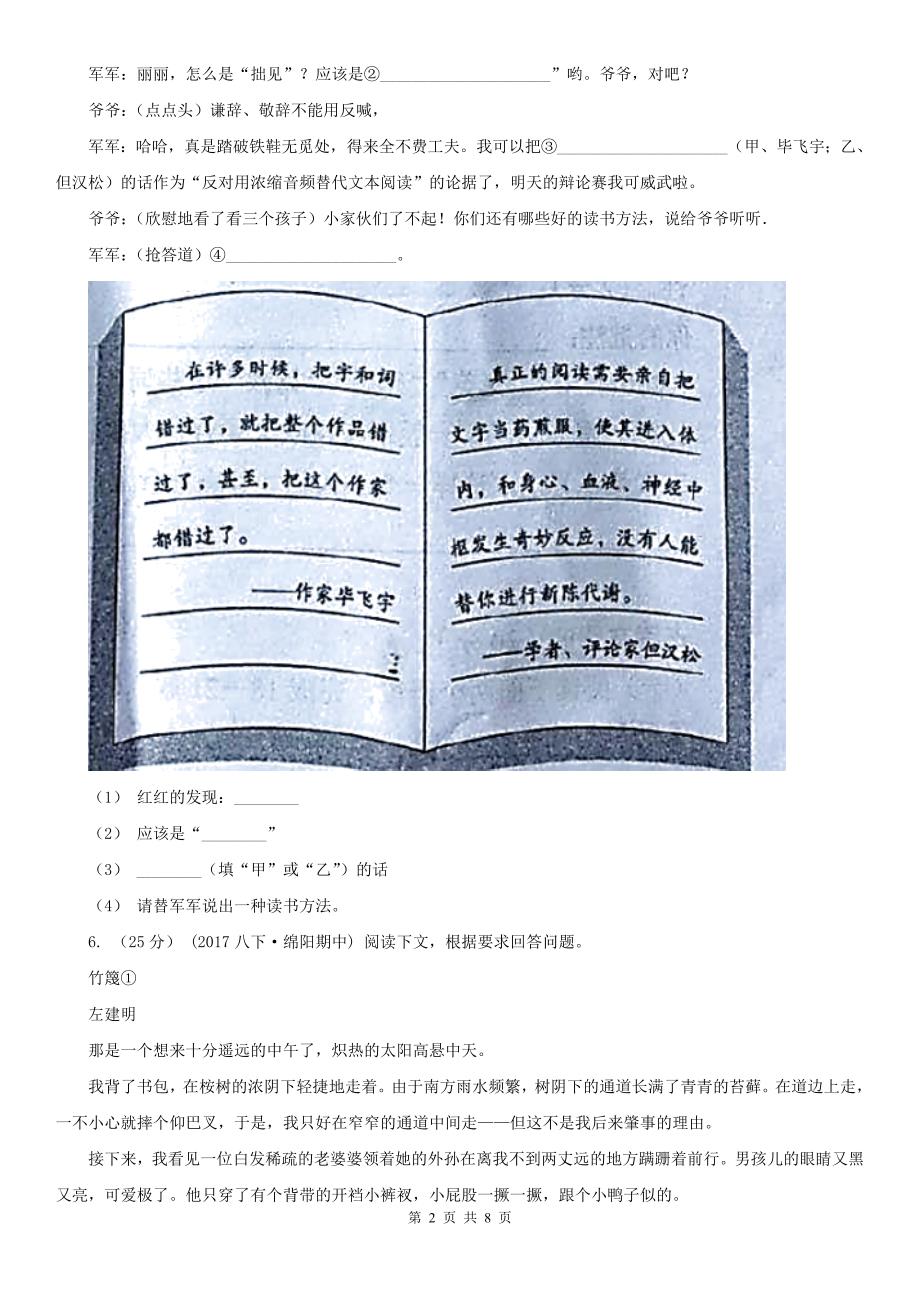 军军：丽丽，怎么是“拙见”？应该是②____________________”哟。爷爷，对吧？
爷爷：（点点头）谦辞、敬辞不能用反喊，
军军：哈哈，真是踏破铁鞋无觅处，得来全不费工夫。我可以把③____________________（甲、毕飞宇；乙、
但汉松）的话作为“反对用浓缩音频替代文本阅读”的论据了，明天的辩论赛我可威武啦。
爷爷：（欣慰地看了看三个孩子）小家伙们了不起！你们还有哪些好的读书方法，说给爷爷听听．
军军：（抢答道）④____________________。
在许多时候，把字和词
错过了，就把整个作品错
过了，甚至，把这个作家
都错过了。
——作家毕飞宇
真正的阅读需要亲自把
文字当药煎服，使其进入体
内，和身心、血液、神经中
枢发生奇妙反应，没有人能
替你进行新陈代谢。
——学者、评论家但汉松
（1） 红红的发现：________
（2） 应该是“________”
（3） ________（填“甲”或“乙”）的话
（4） 请替军军说出一种读书方法。
6. （25分） (2017八下·绵阳期中) 阅读下文，根据要求回答问题。
竹篾①
左建明
那是一个想来十分遥远的中午了，炽热的太阳高悬中天。
我背了书包，在桉树的浓阴下轻捷地走着。由于南方雨水频繁，树阴下的通道长满了青青的苔藓。在道边上走，
一不小心就摔个仰巴叉，于是，我只好在窄窄的通道中间走——但这不是我后来肇事的理由。
接下来，我看见一位白发稀疏的老婆婆领着她的外孙在离我不到两丈远的地方蹒跚着前行。男孩儿的眼睛又黑
又亮，可爱极了。他只穿了有个背带的开裆小裤衩，小屁股一撅一撅，跟个小鸭子似的。
第 2 页 共 8 页